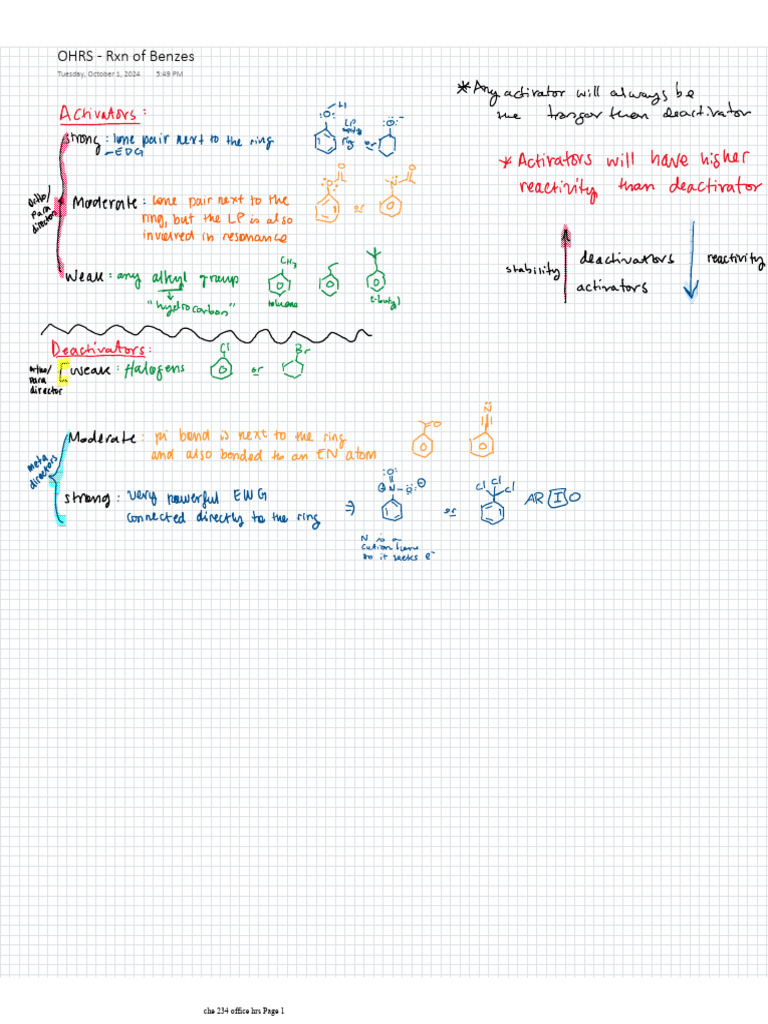 OHRS - Rxn of Benzes
Tuesday, October 1, 2024 5:49 PM
Activators:
strong: lone pair next to the ring
-EDG
:O: H
LP
ring or
:O:-
Ortho/
Para
directors
Moderate: lone pair next to the
ring, but the LP is also
involved in resonance
O
O
or
O
Weak: any alkyl group
"hydrocarbon"
CH3
toluene
t-butyl
Deactivators:
Ortho/
Para
director
weak: Halogens
Cl
or
Br
meta
directors
Moderate: pi bond is next to the ring
and also bonded to an EN atom
O
N
strong: very powerful EWG
connected directly to the ring
⇒
:O:
⊕N-O:⊖
or
Cl Cl
Cl
AR I O
N is a
cation here
so it seeks e-
*Any activator will always be
than deactivator
*Activators will have higher
reactivity than deactivator
stability
deactivators
activators
reactivity
che 234 office hrs Page 1